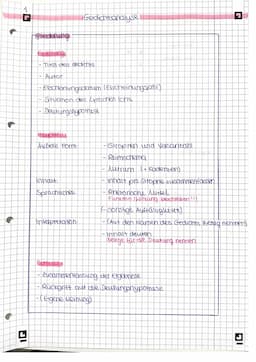 1
Gedichtanalyse
Gliederung
Einleitung
- Titel des Gedichts
- Autor
- Erscheinungsdatum (Erscheinungsort)
- Sprechen des Lyrischen Ichs
- Deutungshypothese
Hauptteil
Äußere Form - Strophen und Versanzahl
- Reimschema
- Metrum (+ Kadenzen)
Inhalt - Inhalt pro Strophe zusammenfassen
Sprachliches - Rhetorische Mittel
Funktion/Wirkung beschreiben!!!
(- sonstige Auffälligkeiten)
Interpretation - (Auf den Namen des Gedichts Bezug nehmen)
- Inhalt deuten
Belege für die Deutung nennen
Schluss
- Zusammenfassung der Ergebnisse
- Rückgriff auf die Deutungshypothese
- (Eigene Meinung)